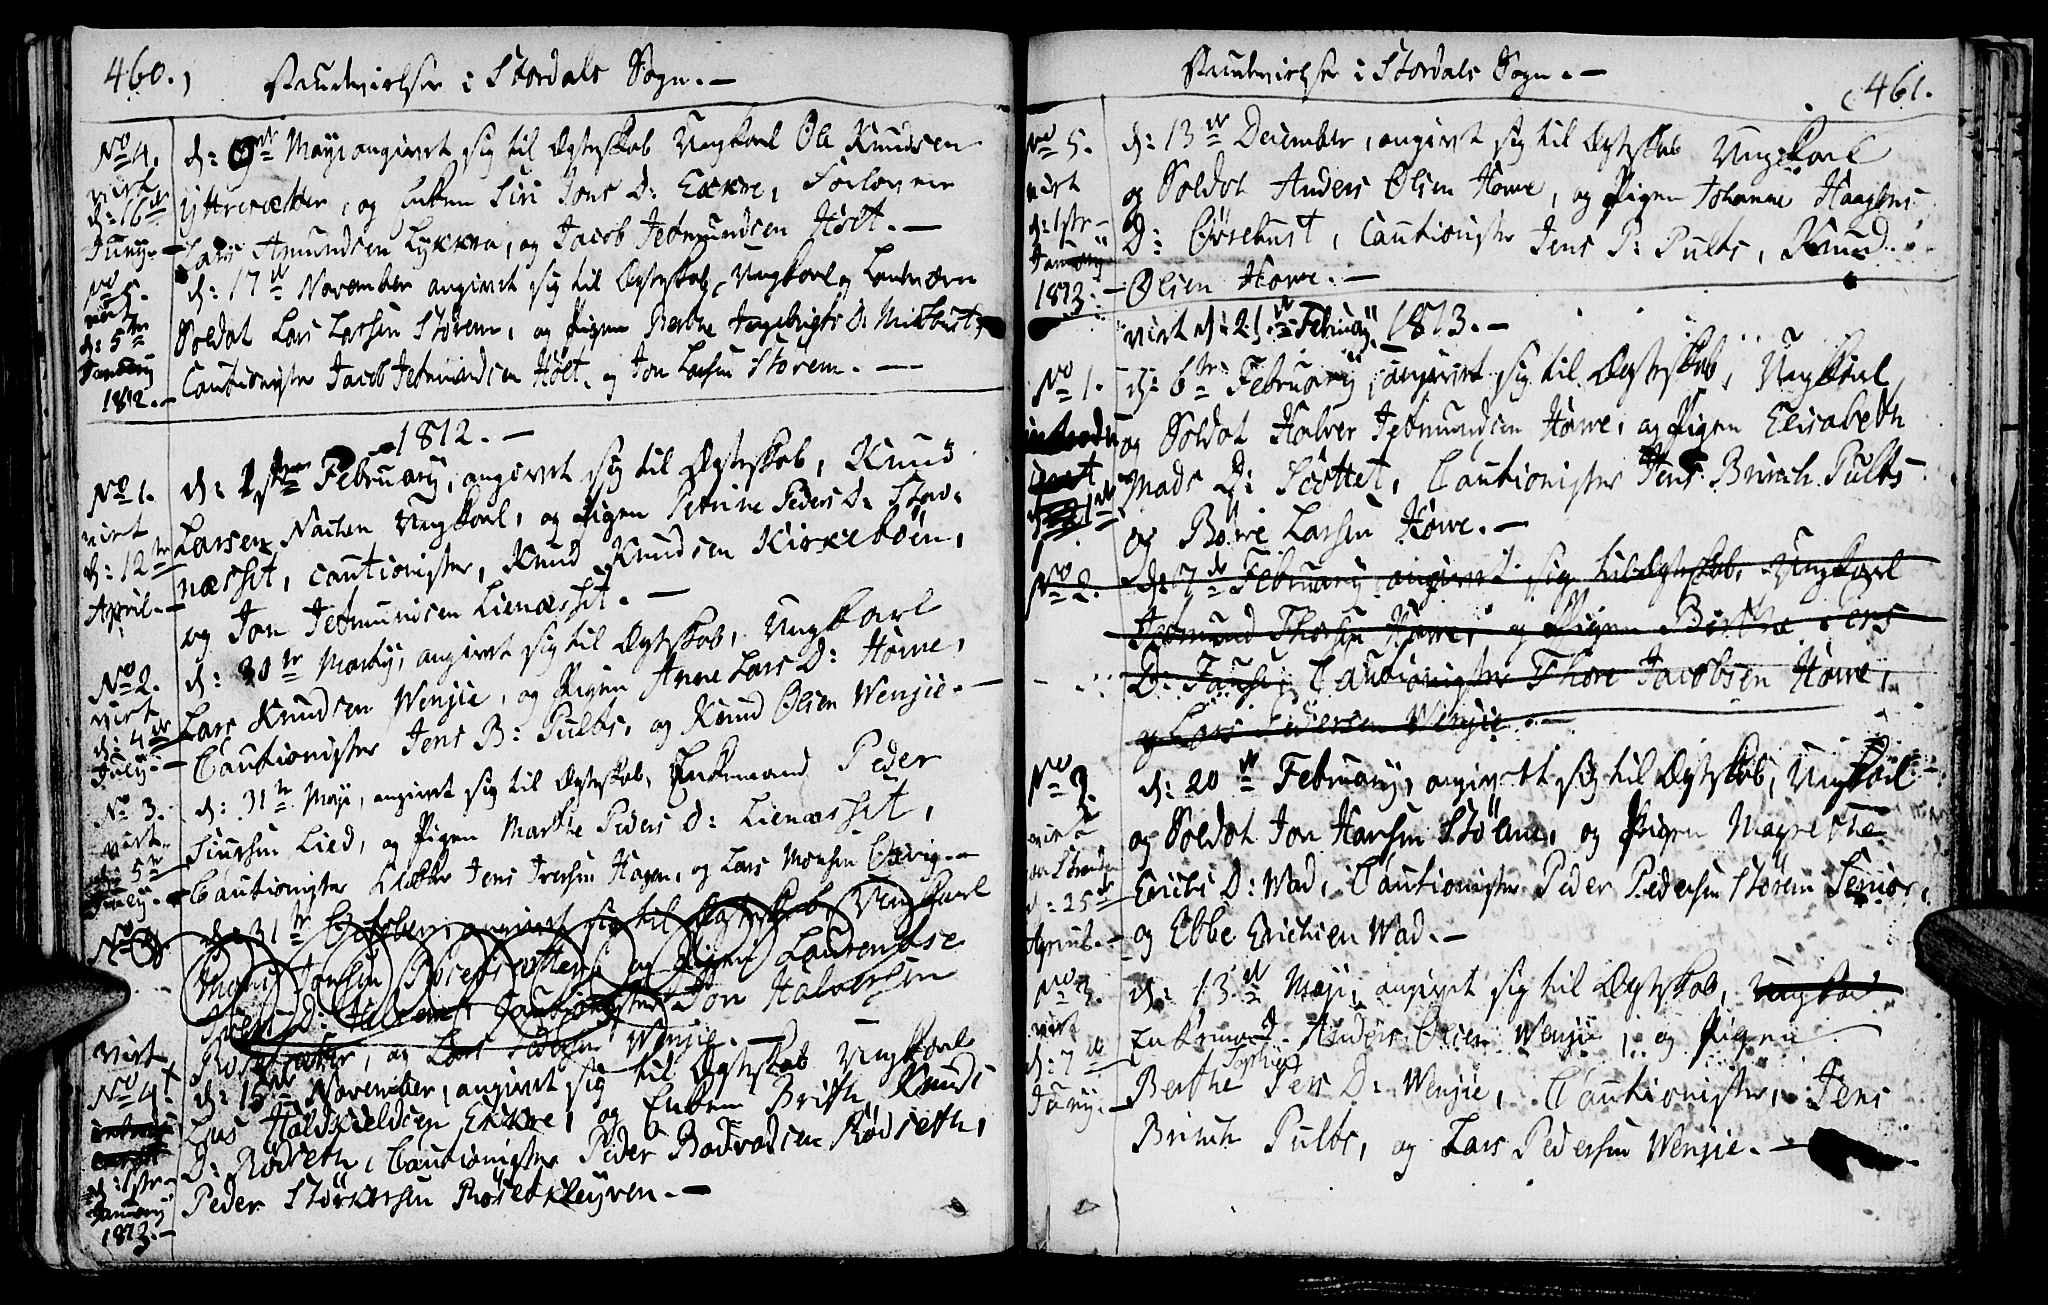 460.
Saudvielser i Stordals Sogn. —
No 4.
viet
d: 16de
Juny. —
d: 9de Mayi angivet sig til Egteskab Ungkarl Ole Knudsen
Yttresætter, og Enken Siri Jons D: Eekre, Forlovere
Lars Amundsen Lykkra, og Jacob Jetmundsen Höet. —
No 5.
viet
d: 5te
January
1812. —
d: 17de November angivet sig til Egteskab, Ungkarl og Landværn
Soldat Lars Larsen Storem, og Pigen Berthe Ingebrigts D: Midtbust,
Cautionister Jacob Jetmundsen Höet, og Jon Larsen Storem. —
1812. —
No 1.
viet
d: 12te
April. —
d: 1ste February, angivet sig til Egteskab, Knud
Larsen Nachen Ungkarl, og Pigen Petrine Peders D: Stav-
næsset, Cautionister, Knud Knudsen Kirkeböen,
og Jon Jetmundsen Lienæsset. —
No 2.
viet
d: 4de
July. —
d: 30te Marty, angivet sig til Egteskab, Ungkarl
Lars Knudsen Wensie, og Pigen Anne Lars D: Howe,
Cautionister Jens B: Pults, og Knud Olsen Wensie. —
No 3.
viet
d: 5te
July. —
d: 31te Mayi, angivet sig til Egteskab, Enkemand Peder
Siursen Lied, og Pigen Marthe Peders D: Lienæsset,
Cautionister Klokker Jens Iversen Hagen, og Lars Monsen Overig. —
No 4.
d: 31te October, angivet sig til Egteskab, Ungkarl
Mons Jonsen Rosetsætter, og Pigen Laurendse
Iver D: Cautionister Jon Halvorsen
Rosetsætter, og Lars Pedersen Wensie. —
viet
No 4.
d: 1ste
January
1813. —
d: 15de November, angivet sig til Egteskab Ungkarl
Lars Haldkieldsen Ekkre, og Enken Brith Knuds
D: Rödseth, Cautionister Peder Bardvadsen Rödseth,
Peder Störkersen Rosetkleyven. —
461.
Saudvielser i Stordals Sogn. —
No 5.
viet
d: 1ste
January
1813. —
d: 13de December, angivet sig til Egteskab Ungkarl
og Soldat Anders Olsen Howe, og Pigen Johanne Haagens
D: Ovrebust, Cautionister Jens B: Pults, Knud
Olsen Howe. —
viet d: 21de February 1813. —
No 1.
d: 6te February, angivet sig til Egteskab, Ungkarl
og Soldat Halvor Jetmundsen Howe, og Pigen Elisabeth
Mads D: Slottet, Cautionister Jens Brinch Pults
og Böwe Larsen Howe. —
No 2.
d: 7de February angivet sig til Egteskab, Ungkarl
Jetmund Thoresen Howe, og Pigen Berthe Jens
D: Fause, Cautionister Thore Jacobsen Howe,
og Lars Pedersen Wensie. —
No 2.
viet
d: 25de
April. —
d: 20de February, angivet sig til Egteskab, Ungkarl
og Soldat Jon Hansen Stölen, og Pigen Magrethe
Erichs D: Wad, Cautionister Peder Pedersen Störem Senior,
og Ebbe Erichsen Wad. —
No 3.
viet
d: 7de
Juny. —
d: 13de Mayi, angivet sig til Egteskab, Ungkarl
Enkemand Anders Olsen Wensie, og Pigen
Berthe Sophie Pers D: Wensie, Cautionister, Jens
Brinch Pults, og Lars Pedersen Wensie. —